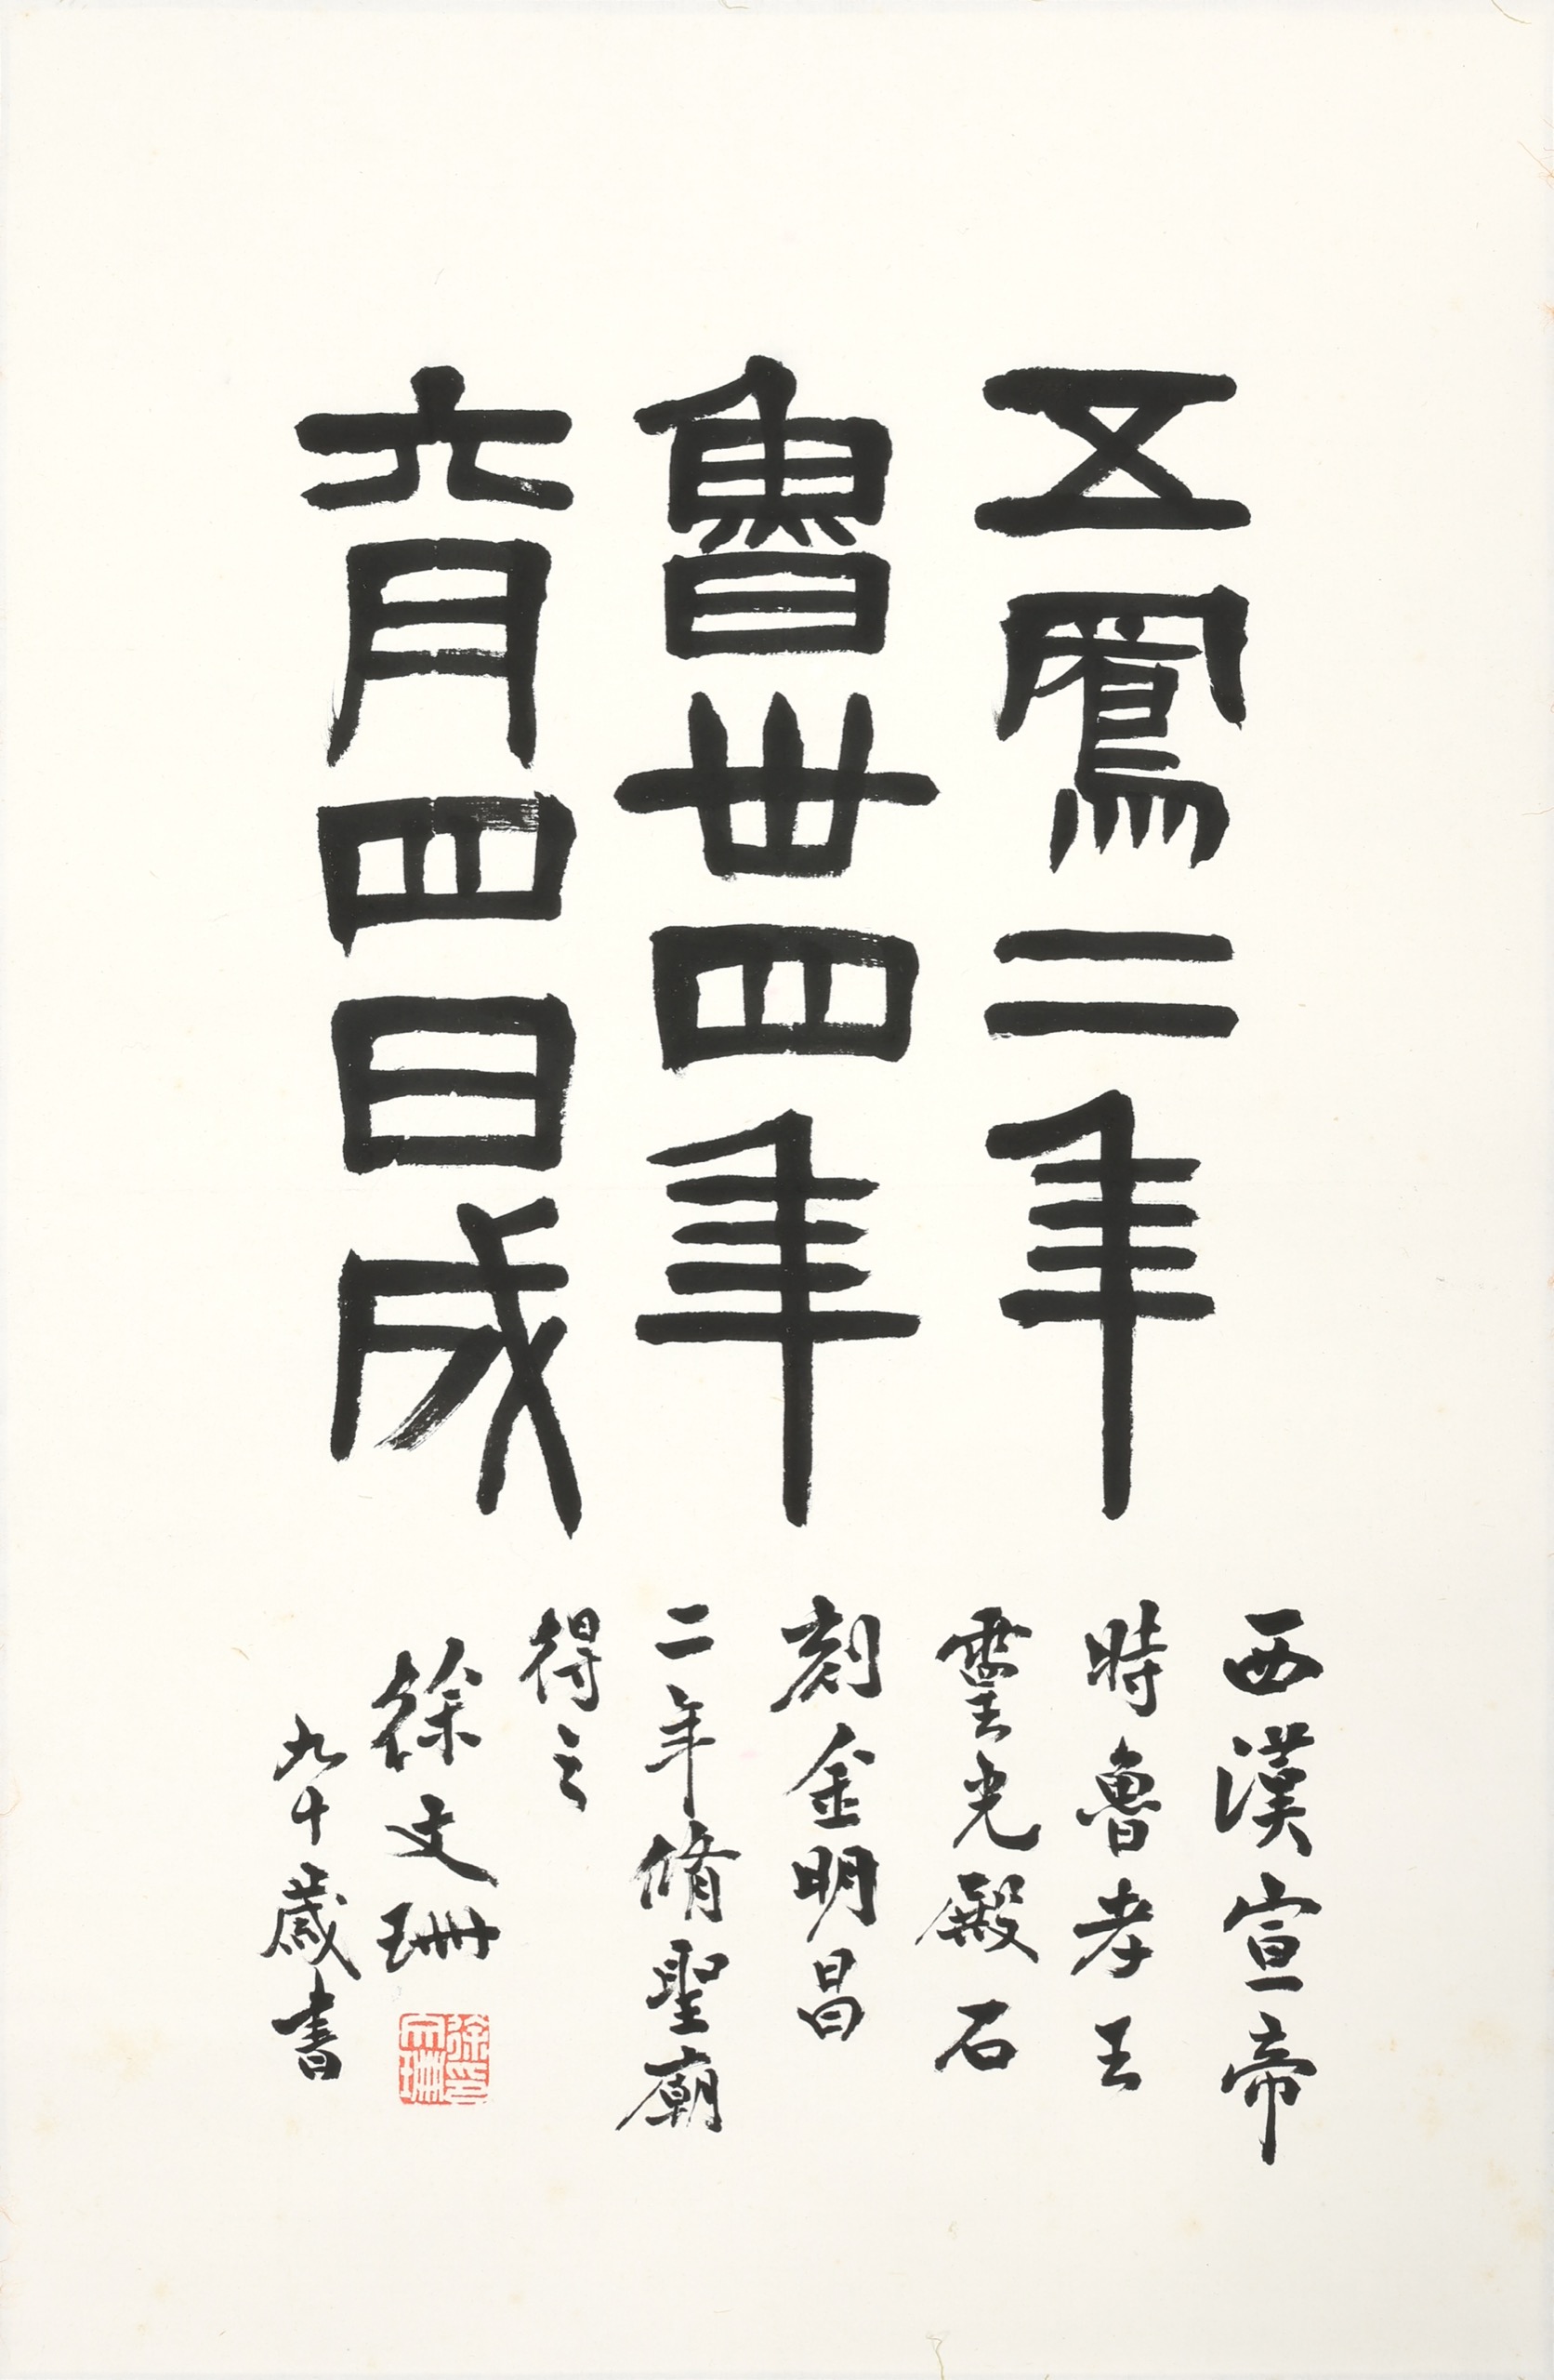 五鳳二年
魯卅四年
六月四日成
西漢宣帝
時魯孝王
靈光殿石
刻金明昌
二年脩聖廟
得之
徐文珊
九十歲書
徐文珊印